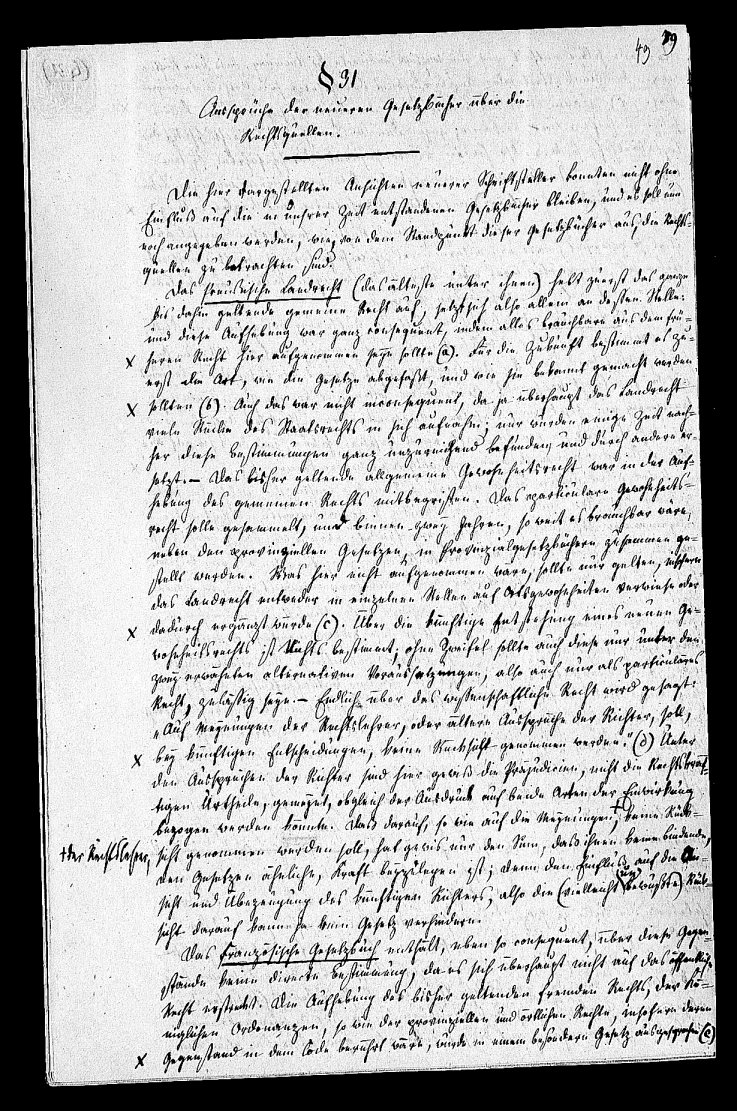 49 29
§ 31
Aussprüche der neueren Gesetzbücher über die
Rechtsquellen.
Die hier dargestellten Ansichten neuerer Schriftsteller konnten nicht ohne
Einfluß auf die in unsrer Zeit entstandenen Gesetzbücher bleiben, und es soll nun
noch angegeben werden, wie von dem Standpunkt dieser Gesetzbücher aus, die Rechts-
quellen zu betrachten sind.
Das Preußische Landrecht (das älteste unter ihnen) hebt zuerst das ganze
bis dahin geltende gemeine Recht auf, setzt sich also allein an dessen Stelle;
und diese Aufhebung war ganz consequent, indem alles brauchbare aus dem frü-
heren Recht hier aufgenommen seyn sollte (a). Für die Zukunft bestimmt es zu-
erst die Art, wie die Gesetze abgefaßt, und wie sie bekannt gemacht werden
sollten (b). Auch das war nicht inconsequent, da ja überhaupt das Landrecht
viele Stücke des Staatsrechts in sich aufnahm; nur wurden einige Zeit nach-
her diese Bestimmungen ganz unzureichend befunden, und durch andere er-
setzt. – Das bisher geltende allgemeine Gewohnheitsrecht war in der Auf-
hebung des gemeinen Rechts mitbegriffen. Das particuläre Gewohnheits-
recht solle gesammelt, und binnen zwey Jahren, so weit es brauchbar wäre,
neben den provinziellen Gesetzen, in Provinzialgesetzbüchern zusammen ge-
stellt werden. Was hier nicht aufgenommen wäre, sollte nur gelten, insofern
das Landrecht entweder in einzelnen Stellen auf Ortsgewohnheiten verwiese oder
dadurch ergänzt würde (c). Über die künftige Entstehung eines neuen Ge-
wohnheitsrechts ist Nichts bestimmt; ohne Zweifel sollte auch diese nur unter den
zwey erwähnten alternativen Voraussetzungen, also auch nur als particuläres
Recht, zulässig seyn. – Endlich über das wissenschaftliche Recht wird gesagt:
„Auf Meynungen der Rechtslehrer, oder ältere Aussprüche der Richter, soll,
bey künftigen Entscheidungen, keine Rücksicht genommen werden." (d) Unter
den Aussprüchen der Richter sind hier gewiß die Präjudicien, nicht die Rechtskräf-
tigen Urtheile, gemeynt, obgleich der Ausdruck auf beide Arten der Einwirkung
bezogen werden könnte. Daß darauf, so wie auf die Meynungen, + keine Rück-
+ der Rechtslehrer,
sicht genommen werden soll, hat gewis nur den Sinn, daß ihnen keine bindende,
den Gesetzen ähnliche, Kraft beyzulegen ist; denn den Einfluß auf die An-
sicht und Überzeugung des künftigen Richters, also die (vielleicht unbewußte) Rück-
sicht darauf kann ja kein Gesetz verhindern.
Das Französische Gesetzbuch enthält, eben so consequent, über diese Gegen-
stände keine directe Bestimmung, da es sich überhaupt nicht auf das öffentliche
Recht erstreckt. Die Aufhebung des bisher geltenden fremden Rechts, der Kö-
niglichen Ordonanzen, so wie der provinziellen und örtlichen Rechte, insofern deren
Gegenstand in dem Code berührt wäre, wurde in einem besondern Gesetz ausgesprochen (e)